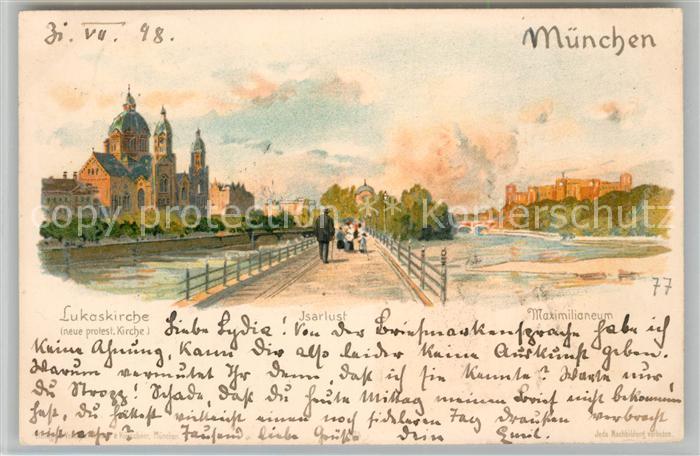 31. VII. 98.
München
Lukaskirche
(neue protest. Kirche.)
Isarlust
Maximilianeum
77
Liebe Lydia! Von der Briefmarkensprache habe ich
keine Ahnung, kann Dir also leider keine Auskunft geben.
Warum vermutet Ihr denn, daß ich sie kannte? Warte nur
du Stropp! Schade, daß du heute Mittag meinen Brief nicht bekommen
hast, du hättest vielleicht einen noch fideleren Tag draußen verbracht
nicht wahr? Tausend liebe Grüße dein Emil.
München
Jede Nachbildung verboten.
ansichtskarten-komischke